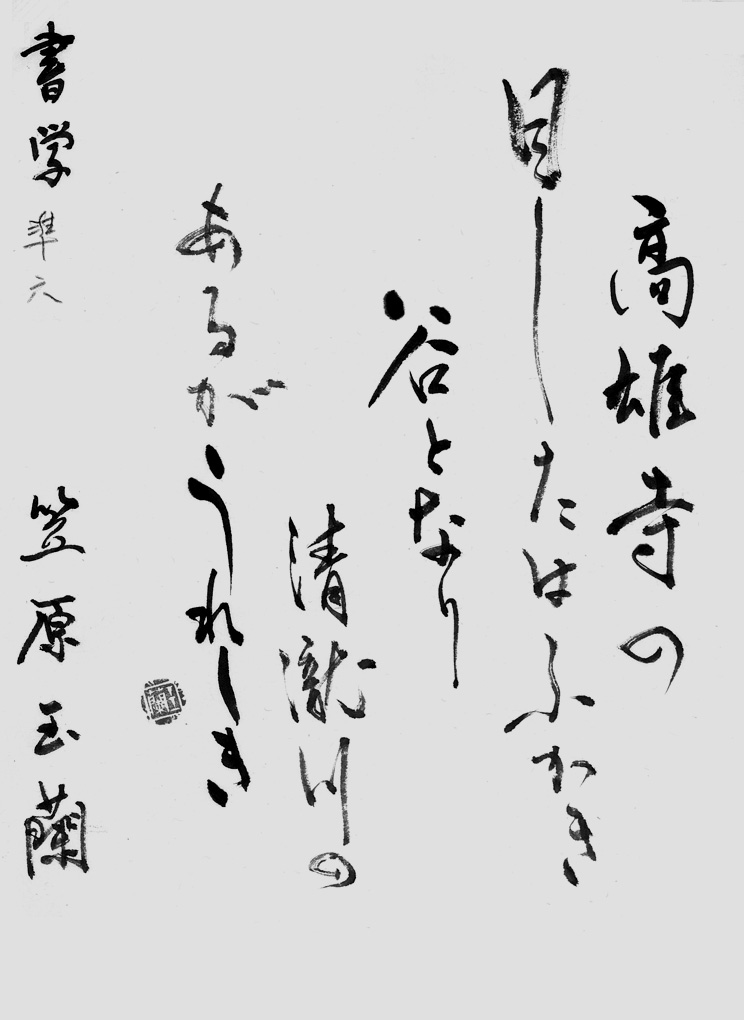 高雄寺の
目したはふかき
谷となり
清瀧川の
あるがうれしき
書学 準六 笠原玉蘭